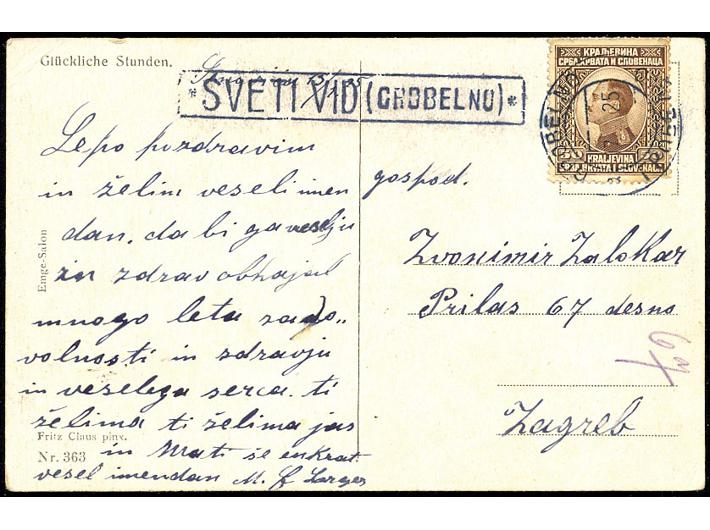 Glückliche Stunden.
*SVETI VID (GROBELNO)*
КРАЉЕВИНА
СРБА, ХРВАТА И СЛОВЕНАЦА
KRALJEVINA
HRVATA I SLOVENA
GROBELNO
25
Lepo pozdravim
in želim veseli imen
dan. da bi ga veselju
in zdrav obhajal
mnogo leta zado..
voljnosti in zdravju
in veselega serca. ti
želima ti želima jas
in Mati še enkrat
vesel imendan M. f
gospod.
Zvonimir Zalokar
Prilas 67 desno
Zagreb
67
Emge-Salon
Fritz Claus pinx.
Nr. 363